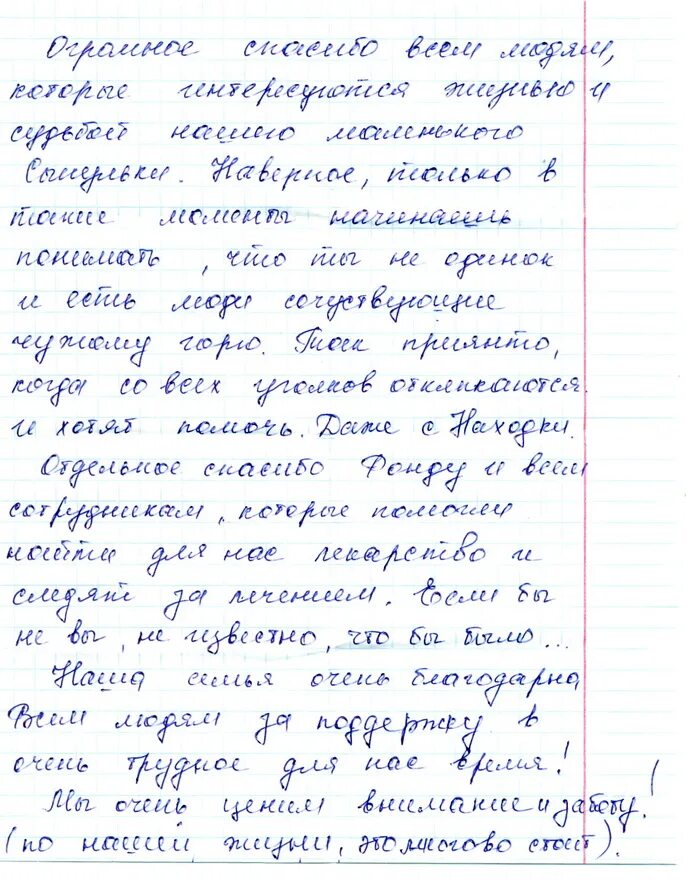 Огромное спасибо всем людям,
которые интересуются жизнью и
судьбой нашего маленького
Наверное, только в
такие моменты начинаешь
понимать, что ты не одинок
и есть люди сочуствующие
чужому горю. Так приятно,
когда со всех уголков откликаются
и хотят помочь. Даже с Находки.
Отдельное спасибо Фонду и всем
сотрудникам, которые помогли
найти для нас лекарство и
следят за лечением. Если бы
не вы, не известно, что бы было...
Наша семья очень благодарна
Всем людям за поддержку в
очень трудное для нас время!
Мы очень ценим внимание и заботу!
(по нашей жизни, это многово стоит)!